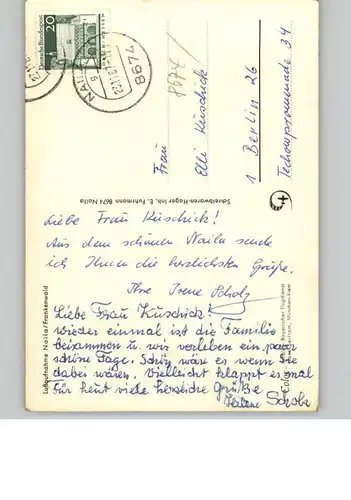 20
Deutsche Bundespost
NAILA
8674
8674
Frau
Elli Kuschick
1 Berlin 26
Techowpromenade 34
Schreibwaren-Hager Inh. E. Fuhrmann 8674 Naila
Liebe Frau Kuschick!
Aus dem schönen Naila sende
ich Ihnen die herzlichsten Grüße.
Ihre Irene Scholz
Liebe Frau Kuschick!
wieder einmal ist die Familie
beisammen u. wir verleben ein paar
schöne Tage. Schön wäre es wenn Sie
dabei wären. Vielleicht klappt es mal
Für heut viele herzliche Grüße
Scholz
Luftaufnahme Naila/Frankenwald